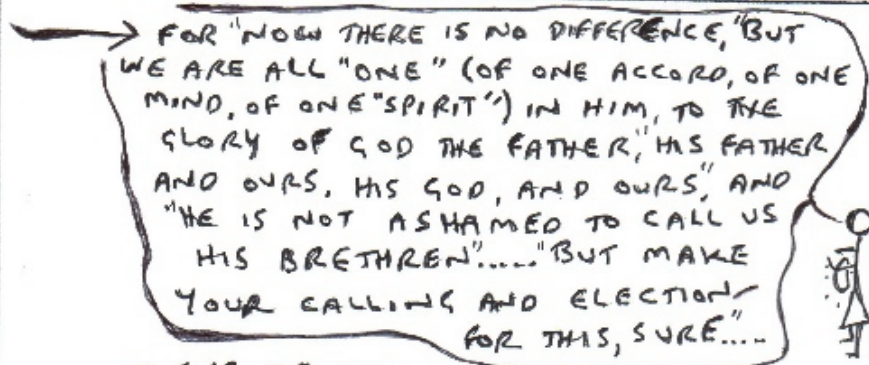 FOR "NOW THERE IS NO DIFFERENCE," BUT
WE ARE ALL "ONE" (OF ONE ACCORD, OF ONE
MIND, OF ONE "SPIRIT") IN HIM, TO THE
GLORY OF GOD THE FATHER," HIS FATHER
AND OURS, HIS GOD, AND OURS", AND
"HE IS NOT ASHAMED TO CALL US
HIS BRETHREN"....."BUT MAKE
YOUR CALLING AND ELECTION
FOR THIS, SURE".....